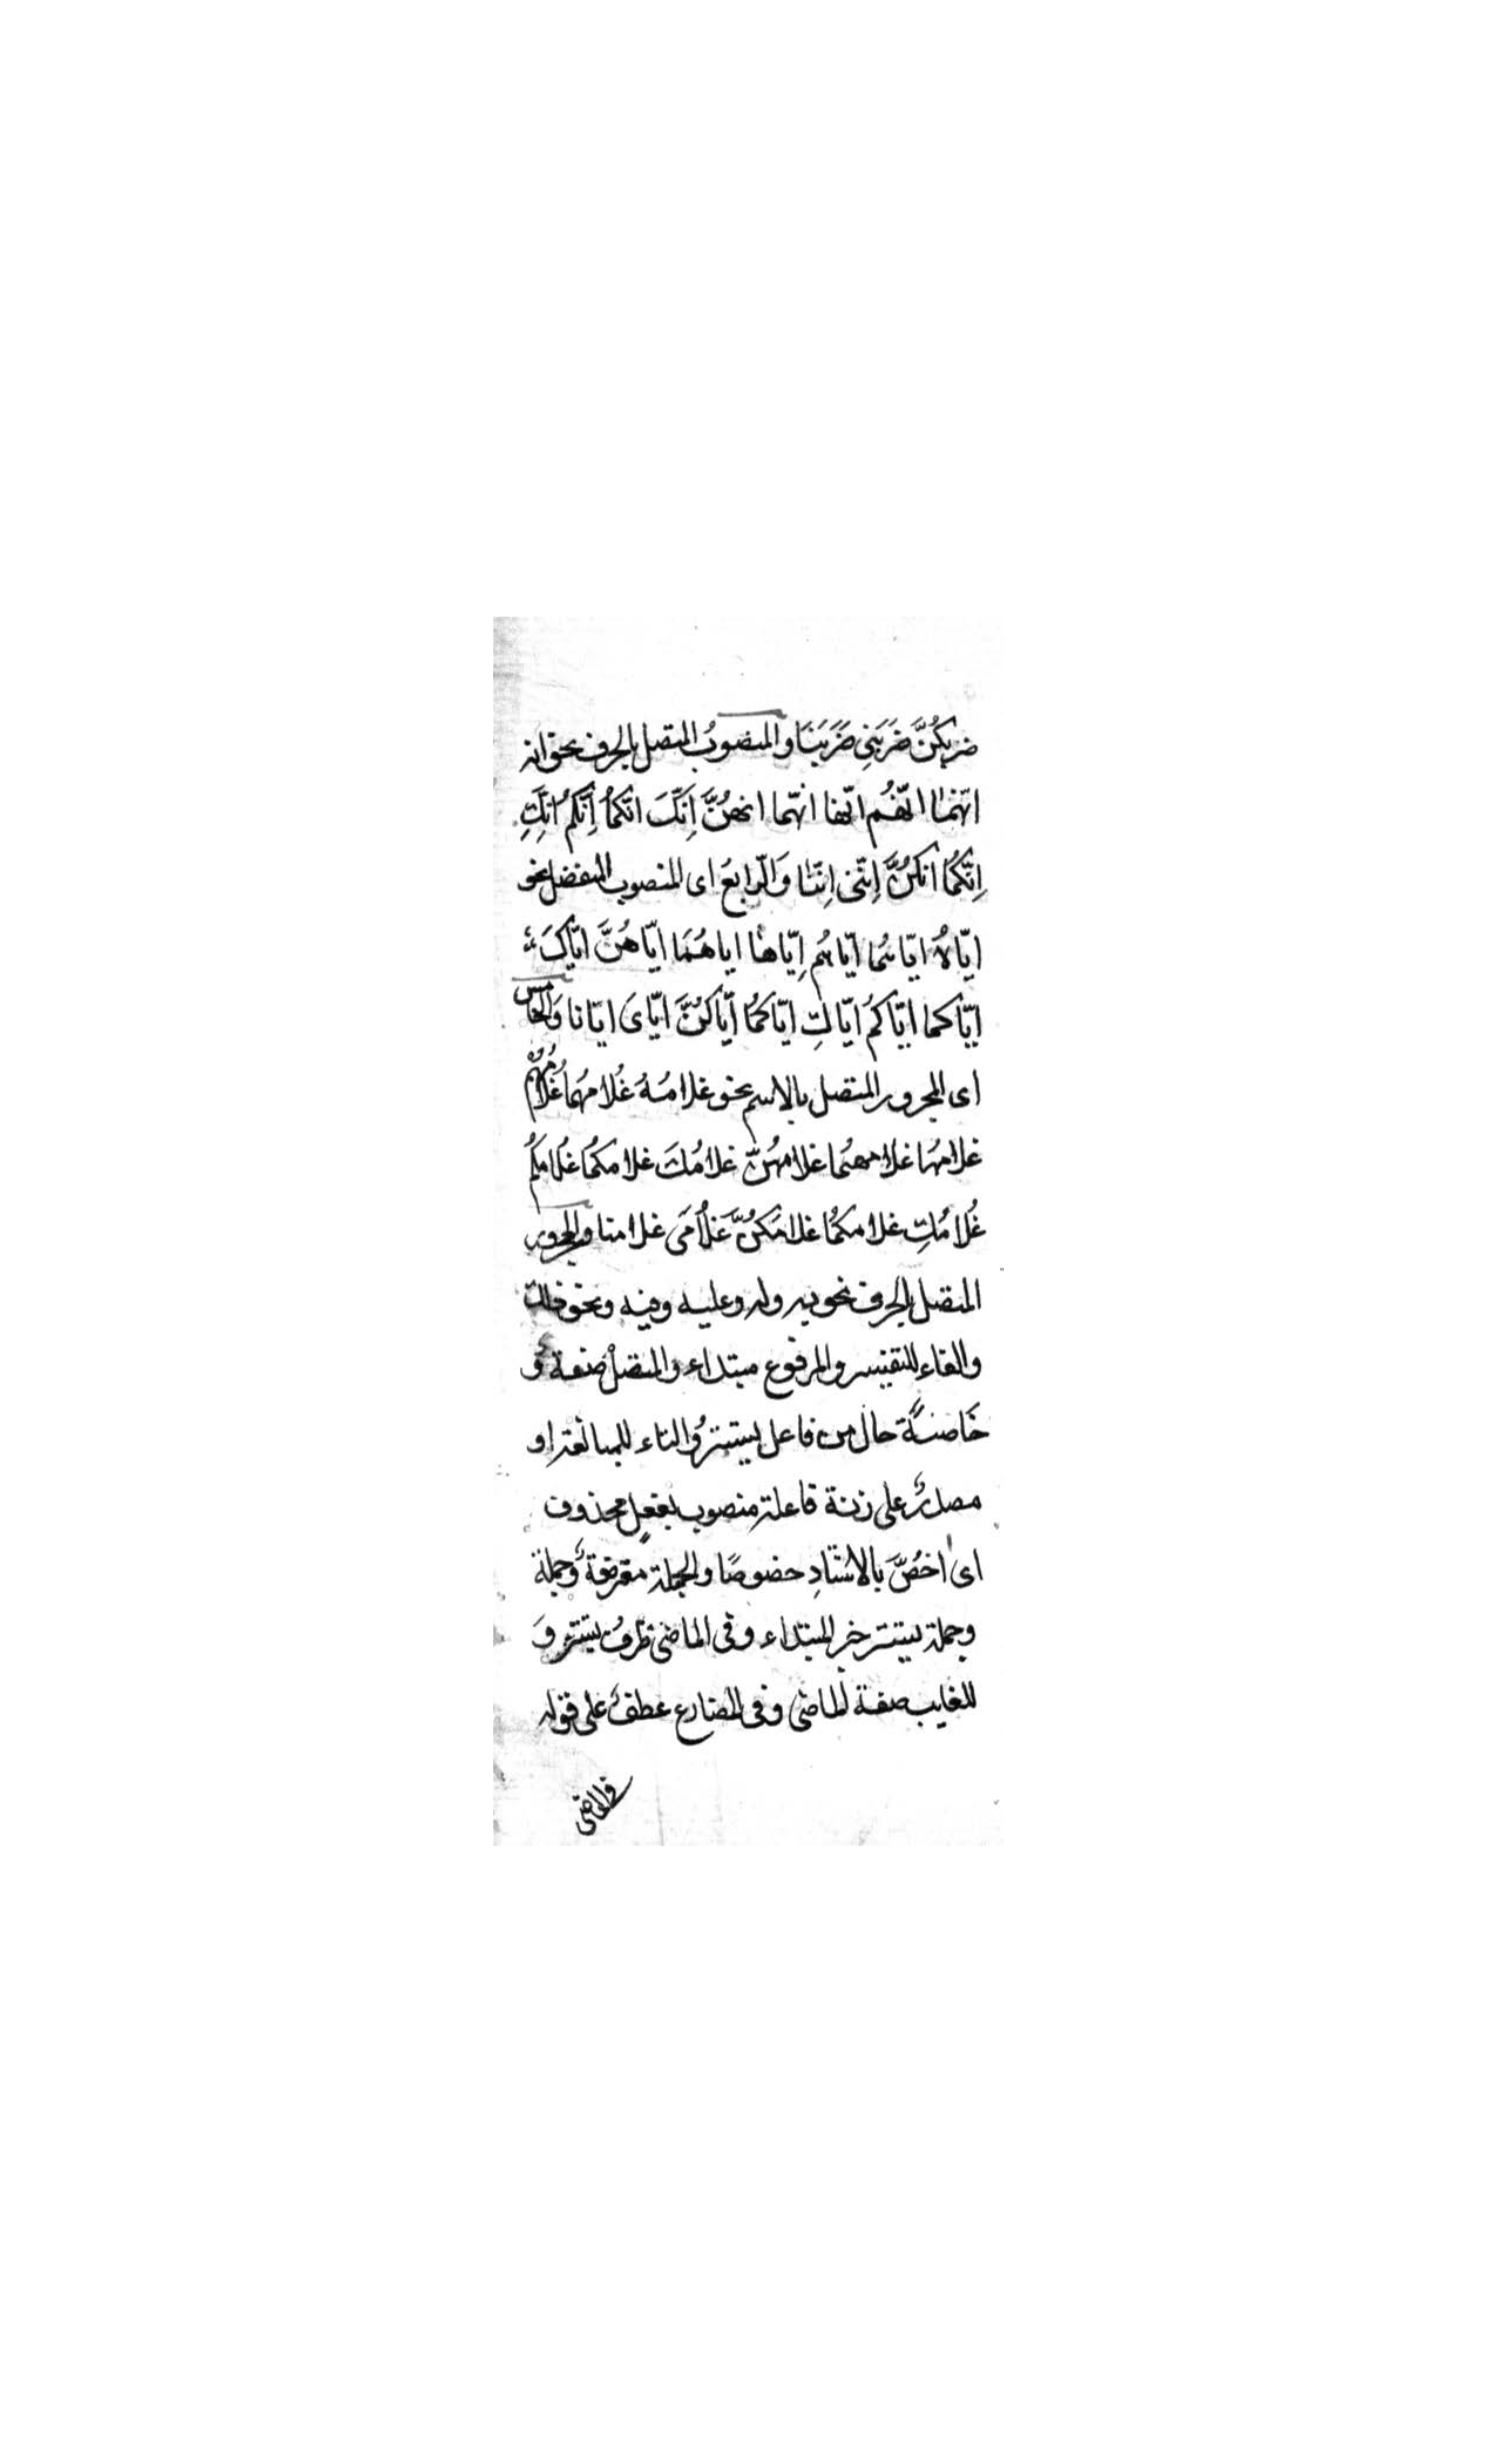 ضربكُنَّ ضَرَبَنِى ضَرَبَنَا والمنصوبُ المتصل بالحرف نحو انه
انّهُما انّهُم انّها انّهما انهُنَّ اِنَّكَ انّكمُا اِنَّكمُ انّكِ
اِنّكمُا انكُنَّ اِنّنى اِنّنا وَالرّابعُ اى المنصوب المنفصل نحو
ايّاهُ ايّاهُما ايّاهُم اِيّاها اياهُمَا ايّاهُنَّ ايّاكَ
ايّاكما ايّاكمُ ايّاكِ ايّاكمُا ايّاكُنَّ ايّاىَ ايّانا وَالخامس
أى المجرور المتصل بالاسم نحو غلامُهُ غُلامهُما غُلامُهُمْ
غلامهُا غلامهمُا غلامهُنّ غلامُكَ غلامكمُا غُلامكمُ
غُلامُكِ غلامكمُا غلامَكُنَّ غَلاُمىَ غلامنا والمجرور
المتصل بالحرف نحو به وله وعليه وفيه ونحو ذلك
والفاء للتفسير والمرفوع مبتداء والمتصلْ صفة وَ
خَاصّةً حال من فاعل يستترُ والتاء للمبالغة او
مصدرٌ على زنة فاعلة منصوب بفعلٍ محذوف
اى اخُصَّ بالاستتادِ خصوصًا والجملة معترضة وَجملة
وجملة يستتر خبر المبتداء وفى الماضى ظرفُ يستتر وَ
للغايب صفة لماضى وفى المضارع عطفٌ على قوله
فى الماضى